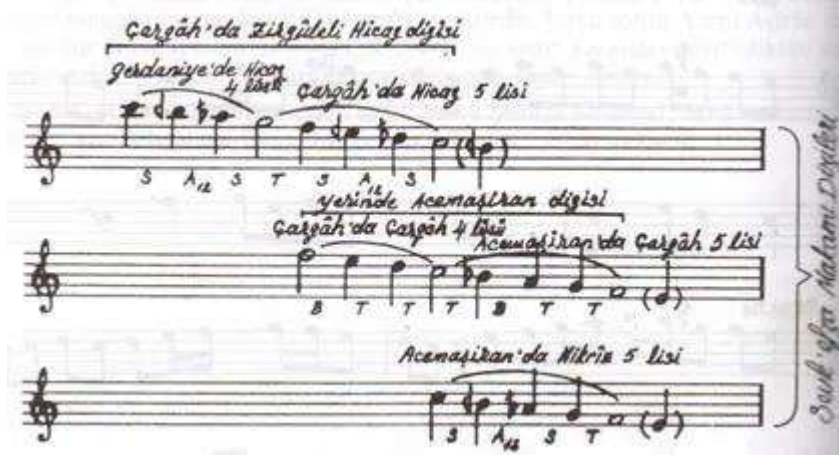 Çargâh'da Zirgüleli Hicaz dizisi
Gerdaniye'de Hicaz
4 lüsü
Çargâh'da Hicaz 5 lisi
S A12 S T S A12 S
Yerinde Acemaşiran dizisi
Çargâh'da Çargâh 4 lüsü
Acemaşiran'da Çargâh 5 lisi
B T T T B T T
Acemaşiran'da Nikrîz 5 lisi
S A12 S T
Makamı Dizileri